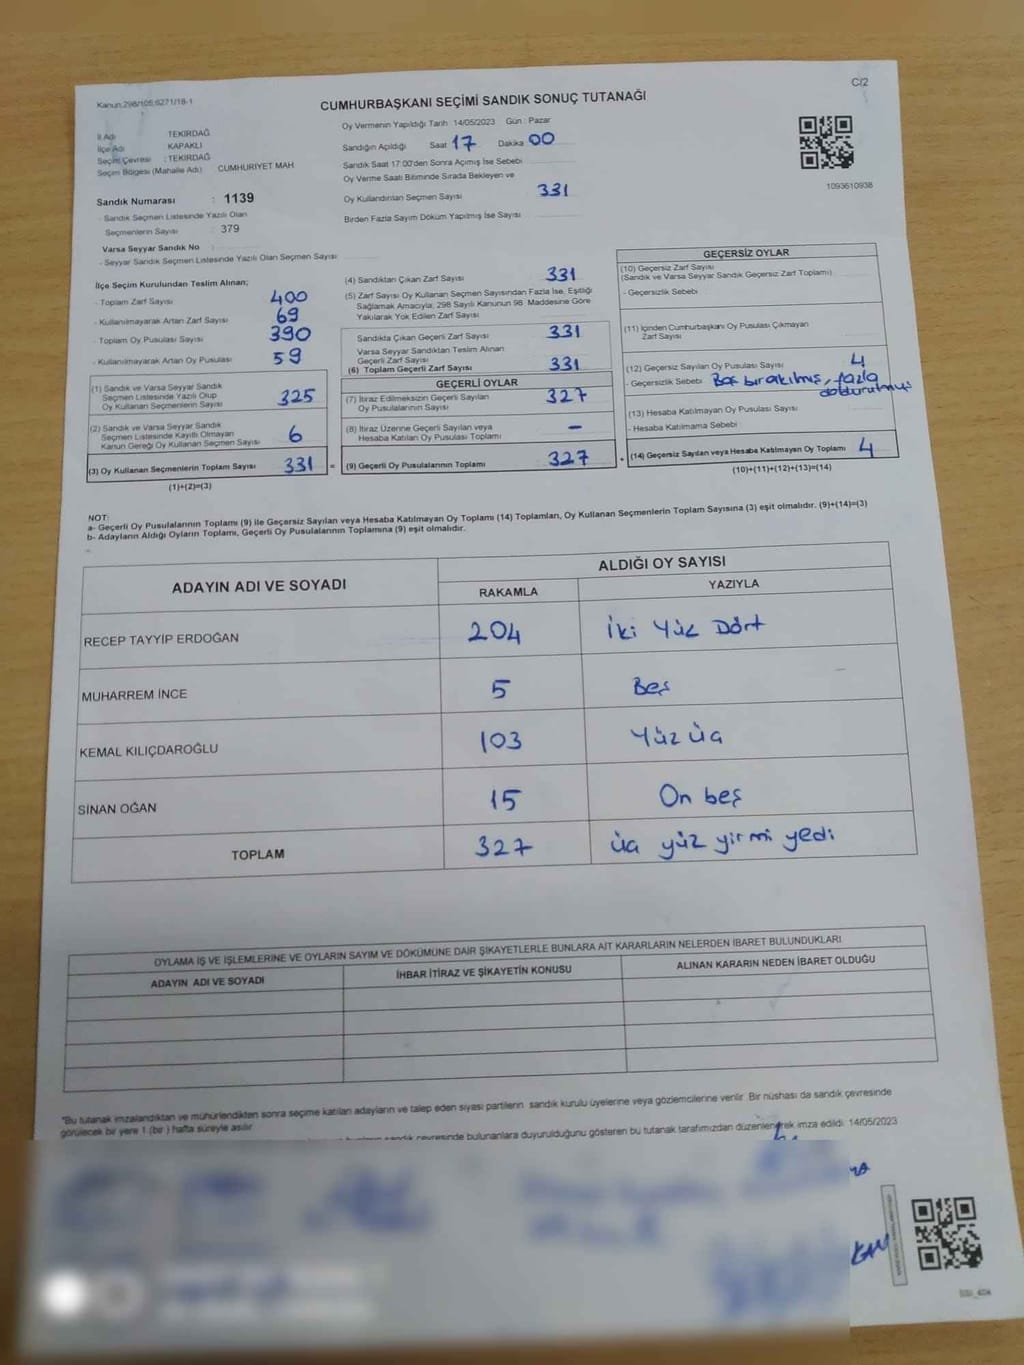 Kanun:298/105;6271/18-1
C/2
CUMHURBAŞKANI SEÇİMİ SANDIK SONUÇ TUTANAĞI
İl Adı TEKİRDAĞ
İlçe Adı KAPAKLI
Seçim Çevresi : TEKİRDAĞ
Seçim Bölgesi (Mahalle Adı) CUMHURİYET MAH.
Sandık Numarası : 1139
- Sandık Seçmen Listesinde Yazılı Olan
Seçmenlerin Sayısı : 379
Varsa Seyyar Sandık No
- Seyyar Sandık Seçmen Listesinde Yazılı Olan Seçmen Sayısı
Oy Vermenin Yapıldığı Tarih 14/05/2023 Gün : Pazar
Sandığın Açıldığı Saat 17 Dakika 00
Sandık Saat 17:00'den Sonra Açımış İse Sebebi
Oy Verme Saati Bitiminde Sırada Bekleyen ve
Oy Kullandırılan Seçmen Sayısı 331
Birden Fazla Sayım Döküm Yapılmış İse Sayısı
1093610938
İlçe Seçim Kurulundan Teslim Alınan;
- Toplam Zarf Sayısı 400
- Kullanılmayarak Artan Zarf Sayısı 69
- Toplam Oy Pusulası Sayısı 390
- Kullanılmayarak Artan Oy Pusulası 59
(1) Sandık ve Varsa Seyyar Sandık
Seçmen Listesinde Yazılı Olup
Oy Kullanan Seçmenlerin Sayısı 325
(2) Sandık ve Varsa Seyyar Sandık
Seçmen Listesinde Kayıtlı Olmayan
Kanun Gereği Oy Kullanan Seçmen Sayısı 6
(3) Oy Kullanan Seçmenlerin Toplam Sayısı 331 =
(1)+(2)=(3)
(4) Sandıktan Çıkan Zarf Sayısı 331
(5) Zarf Sayısı Oy Kullanan Seçmen Sayısından Fazla İse, Eşitliği
Sağlamak Amacıyla; 298 Sayılı Kanunun 98. Maddesine Göre
Yakılarak Yok Edilen Zarf Sayısı
Sandıkta Çıkan Geçerli Zarf Sayısı 331
Varsa Seyyar Sandıktan Teslim Alınan
Geçerli Zarf Sayısı
(6) Toplam Geçerli Zarf Sayısı 331
GEÇERLİ OYLAR
(7) İtiraz Edilmeksizin Geçerli Sayılan
Oy Pusulalarının Sayısı 327
(8) İtiraz Üzerine Geçerli Sayılan veya
Hesaba Katılan Oy Pusulası Toplamı -
(9) Geçerli Oy Pusulalarının Toplamı 327 +
GEÇERSİZ OYLAR
(10) Geçersiz Zarf Sayısı
(Sandık ve Varsa Seyyar Sandık Geçersiz Zarf Toplamı)
- Geçersizlik Sebebi
(11) İçinden Cumhurbaşkanı Oy Pusulası Çıkmayan
Zarf Sayısı
(12) Geçersiz Sayılan Oy Pusulası Sayısı 4
- Geçersizlik Sebebi Boş bırakılmış, fazla
doldurulmuş
(13) Hesaba Katılmayan Oy Pusulası Sayısı
- Hesaba Katılmama Sebebi
(14) Geçersiz Sayılan veya Hesaba Katılmayan Oy Toplamı 4
(10)+(11)+(12)+(13)=(14)
NOT:
a- Geçerli Oy Pusulalarının Toplamı (9) ile Geçersiz Sayılan veya Hesaba Katılmayan Oy Toplamı (14) Toplamları, Oy Kullanan Seçmenlerin Toplam Sayısına (3) eşit olmalıdır. (9)+(14)=(3)
b- Adayların Aldığı Oyların Toplamı, Geçerli Oy Pusulalarının Toplamına (9) eşit olmalıdır.
ADAYIN ADI VE SOYADI
ALDIĞI OY SAYISI
RAKAMLA YAZIYLA
RECEP TAYYİP ERDOĞAN 204 İki Yüz Dört
MUHARREM İNCE 5 Beş
KEMAL KILIÇDAROĞLU 103 Yüz üç
SİNAN OĞAN 15 On beş
TOPLAM 327 üç yüz yirmi yedi
OYLAMA İŞ VE İŞLEMLERİNE VE OYLARIN SAYIM VE DÖKÜMÜNE DAİR ŞİKAYETLERLE BUNLARA AİT KARARLARIN NELERDEN İBARET BULUNDUKLARI
ADAYIN ADI VE SOYADI İHBAR İTİRAZ VE ŞİKAYETİN KONUSU ALINAN KARARIN NEDEN İBARET OLDUĞU
"Bu tutanak imzalandıktan ve mühürlendikten sonra seçime katılan adayların ve talep eden siyasi partilerin sandık kurulu üyelerine veya gözlemcilerine verilir. Bir nüshası da sandık çevresinde
görülecek bir yere 1 (bir) hafta süreyle asılır.
sandık çevresinde bulunanlara duyurulduğunu gösteren bu tutanak tarafımızdan düzenlenerek imza edildi. 14/05/2023